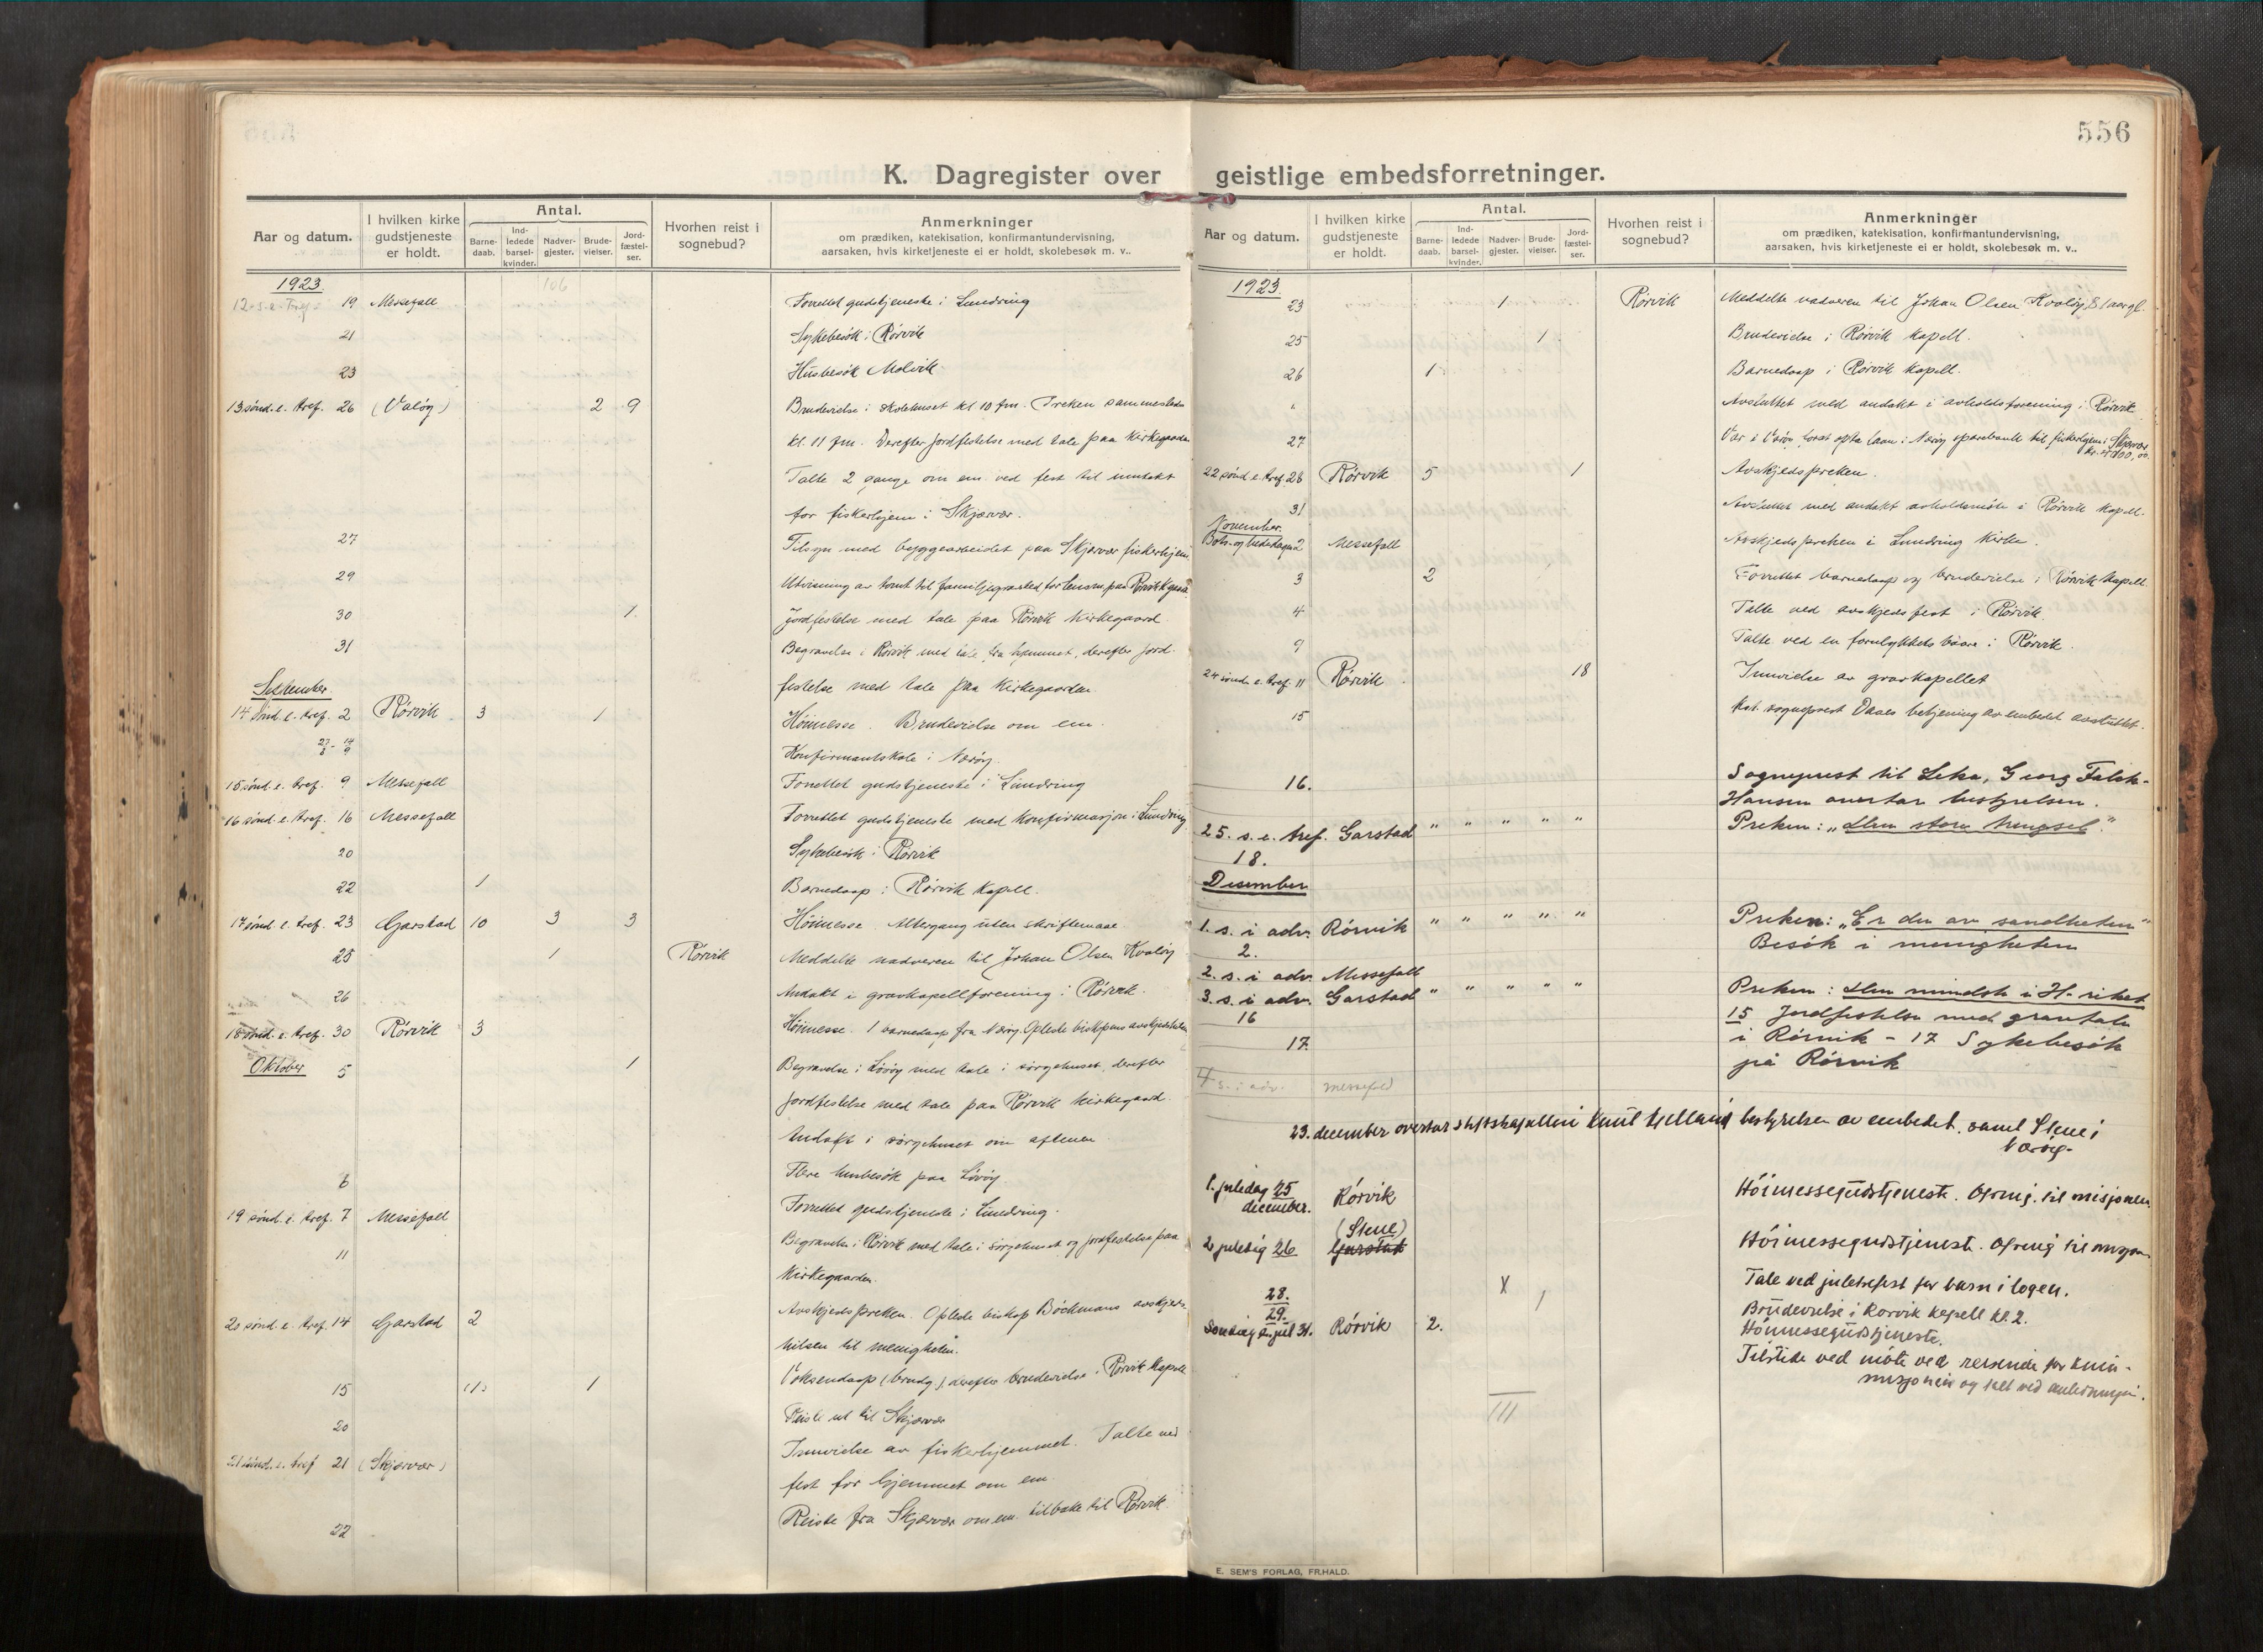 556
K. Dagregister over geistlige embedsforretninger.
Aar og datum.
I hvilken kirke gudstjeneste er holdt.
Antal.
Barne-daab.
Ind-ledede barsel-kvinder.
Nadver-gjester.
Brude-vielser.
Jord-fæstel-ser.
Hvorhen reist i sognebud?
Anmerkninger
om prædiken, katekisation, konfirmantundervisning,
aarsaken, hvis kirketjeneste ei er holdt, skolebesøk m. v..
1923
106
12. s. e. Tref. 19 Messefall Forrettet gudstjeneste i Lundring
21 Sykebesøk i Rørvik
23 Husbesøk Molvik
13 sønd. e. tref. 26 (Valøy) 2 9 Brudevielse i skolehuset kl 10 fm. Preken sammesteds
kl. 11 fm. Derefter jordfestelse med tale paa kirkegaarden
Talte 2 gange om em. ved fest til inntekt
for fiskerhjem i Skjærvær.
27 Tilsyn med byggearbeidet paa Skjærvær fiskerhjem
29 Utvisning av tomt til familjegravsted for lensm. paa Rørvik
30 1. Jordfestelse med tale paa Rørvik kirkegaard
31 Begravelse i Rørvik med tale fra hjemmet, derefter jord-
festelse med tale paa kirkegaarden.
September
14 sønd. e. tref. 2 Rørvik 3 1 Høimesse. Brudevielse om em.
27/8 - 14/9 Konfirmantskole i Nærøy
15 sønd. e. tref. 9 Messefall Forrettet gudstjeneste i Lundring
16 sønd. e. tref. 16 Messefall Forrettet gudstjeneste med konfirmasjon i Lundring
20 Sykebesøk i Rørvik
22 1 Barnedaap i Rørvik kapell.
17 sønd. e. tref. 23 Garstad 10 3 3 Høimesse. Altergang uten skriftemaal
25 1 Rørvik Meddelte nadveren til Johan Olsen Kvaløy
26 Andakt i gravkapellforening i Rørvik.
18 sønd. e. tref. 30 Rørvik 3 Høimesse. 1 barnedaap fra Nærøy. Oplæste biskopens avskjedshilsen
Oktober
5 1 Begravelse i Løvøy med tale i sørgehuset, derefter
jordfestelse med tale paa Rørvik kirkegaard.
Andakt i sørgehuset om aftenen
6 Flere husbesøk paa Løvøy
19 sønd. e. tref. 7 Messefall Forrettet gudstjeneste i Lundring.
11 Begravelse i Rørvik med tale i sørgehuset og jordfestelse paa
kirkegaarden.
20 sønd. e. tref. 14 Garstad 2 Avskjedspreken. Oplæste biskop Bøckmans avskjeds-
hilsen til menigheten.
15 (1) 1 Voksendaap (brudg.), derefter brudevielse i Rørvik kapell
20 Reiste ut til Skjærvær
21 sønd. e. tref 21 (Skjærvær) Innvielse av fiskerhjemmet. Talte ved
fest for hjemmet om em.
22 Reiste fra Skjærvær om em. tilbake til Rørvik.
Aar og datum.
I hvilken kirke gudstjeneste er holdt.
Antal.
Barne-daab.
Ind-ledede barsel-kvinder.
Nadver-gjester.
Brude-vielser.
Jord-fæstel-ser.
Hvorhen reist i sognebud?
Anmerkninger
om prædiken, katekisation, konfirmantundervisning,
aarsaken, hvis kirketjeneste ei er holdt, skolebesøk m. v..
1923
23 1 Rørvik Meddelte nadveren til Johan Olsen Kvaløy, 81 aar gl.
25 1 Brudevielse i Rørvik kapell.
26 1 Barnedaap i Rørvik kapell.
" Avsluttet med andakt i avholdsforening i Rørvik
27 Var i Nærøy sparebank til fiskerhjem i Skjærvær
22 sønd. e. tref. 28 Rørvik 5 1 Avskjedspreken.
31 Avsluttet med andakt avholdsmøte i Rørvik kapell.
November.
Bots- og bededagen 2 Messefall Avskjedspreken i Lundring kirke.
3 2 Forrettet barnedaap og brudevielse i Rørvik kapell.
4 Talte ved avskjedsfest i Rørvik.
9 Talte ved en forulykkets baare i Rørvik.
24 sønd. e. tref. 11 Rørvik 18 Innvielse av gravkapellet
15 Kst. sogneprest Daaes betjening av embedet avsluttet.
16. Sogneprest til Leka, Georg Falck-
Hansen overtar bestyrelsen.
25. s. e. tref. Garstad " " " " " Preken: „Den store trængsel."
18.
Desember
1. s. i adv. Rörvik " " " " " Preken: „Er du av sandheten"
2. Besök i menigheten
2. s. i adv. Messefall
3. s. i adv. Garstad " " " " " Preken: Den mindste i H. riket
16 15 Jordfestelse med gravtale
17. i Rörvik - 17 Sykebesök
på Rörvik
4 s. i adv. messefald
23. december overtar stiftskapellan Knut Kjelland bestyrelsen av embedet, samt Stene i
Nærøy.
1. juledag 25 december. Rórvik Hóimessegudstjeneste. Ofring til misjonen
2 juledag 26 (Stene) Garstad Hóimessegudstjeneste. Ofring til misjon
28. X Tale ved juletrefest for barn i logen.
29. 1 Brudevielse i Rorvik kapell kl. 2.
Rórvik 2. Hóimessegudstjeneste.
Tilstede ved móte ved reisende for kina-
misjonen og talt ved anledningen.
III
E. SEM'S FORLAG, FR.HALD.